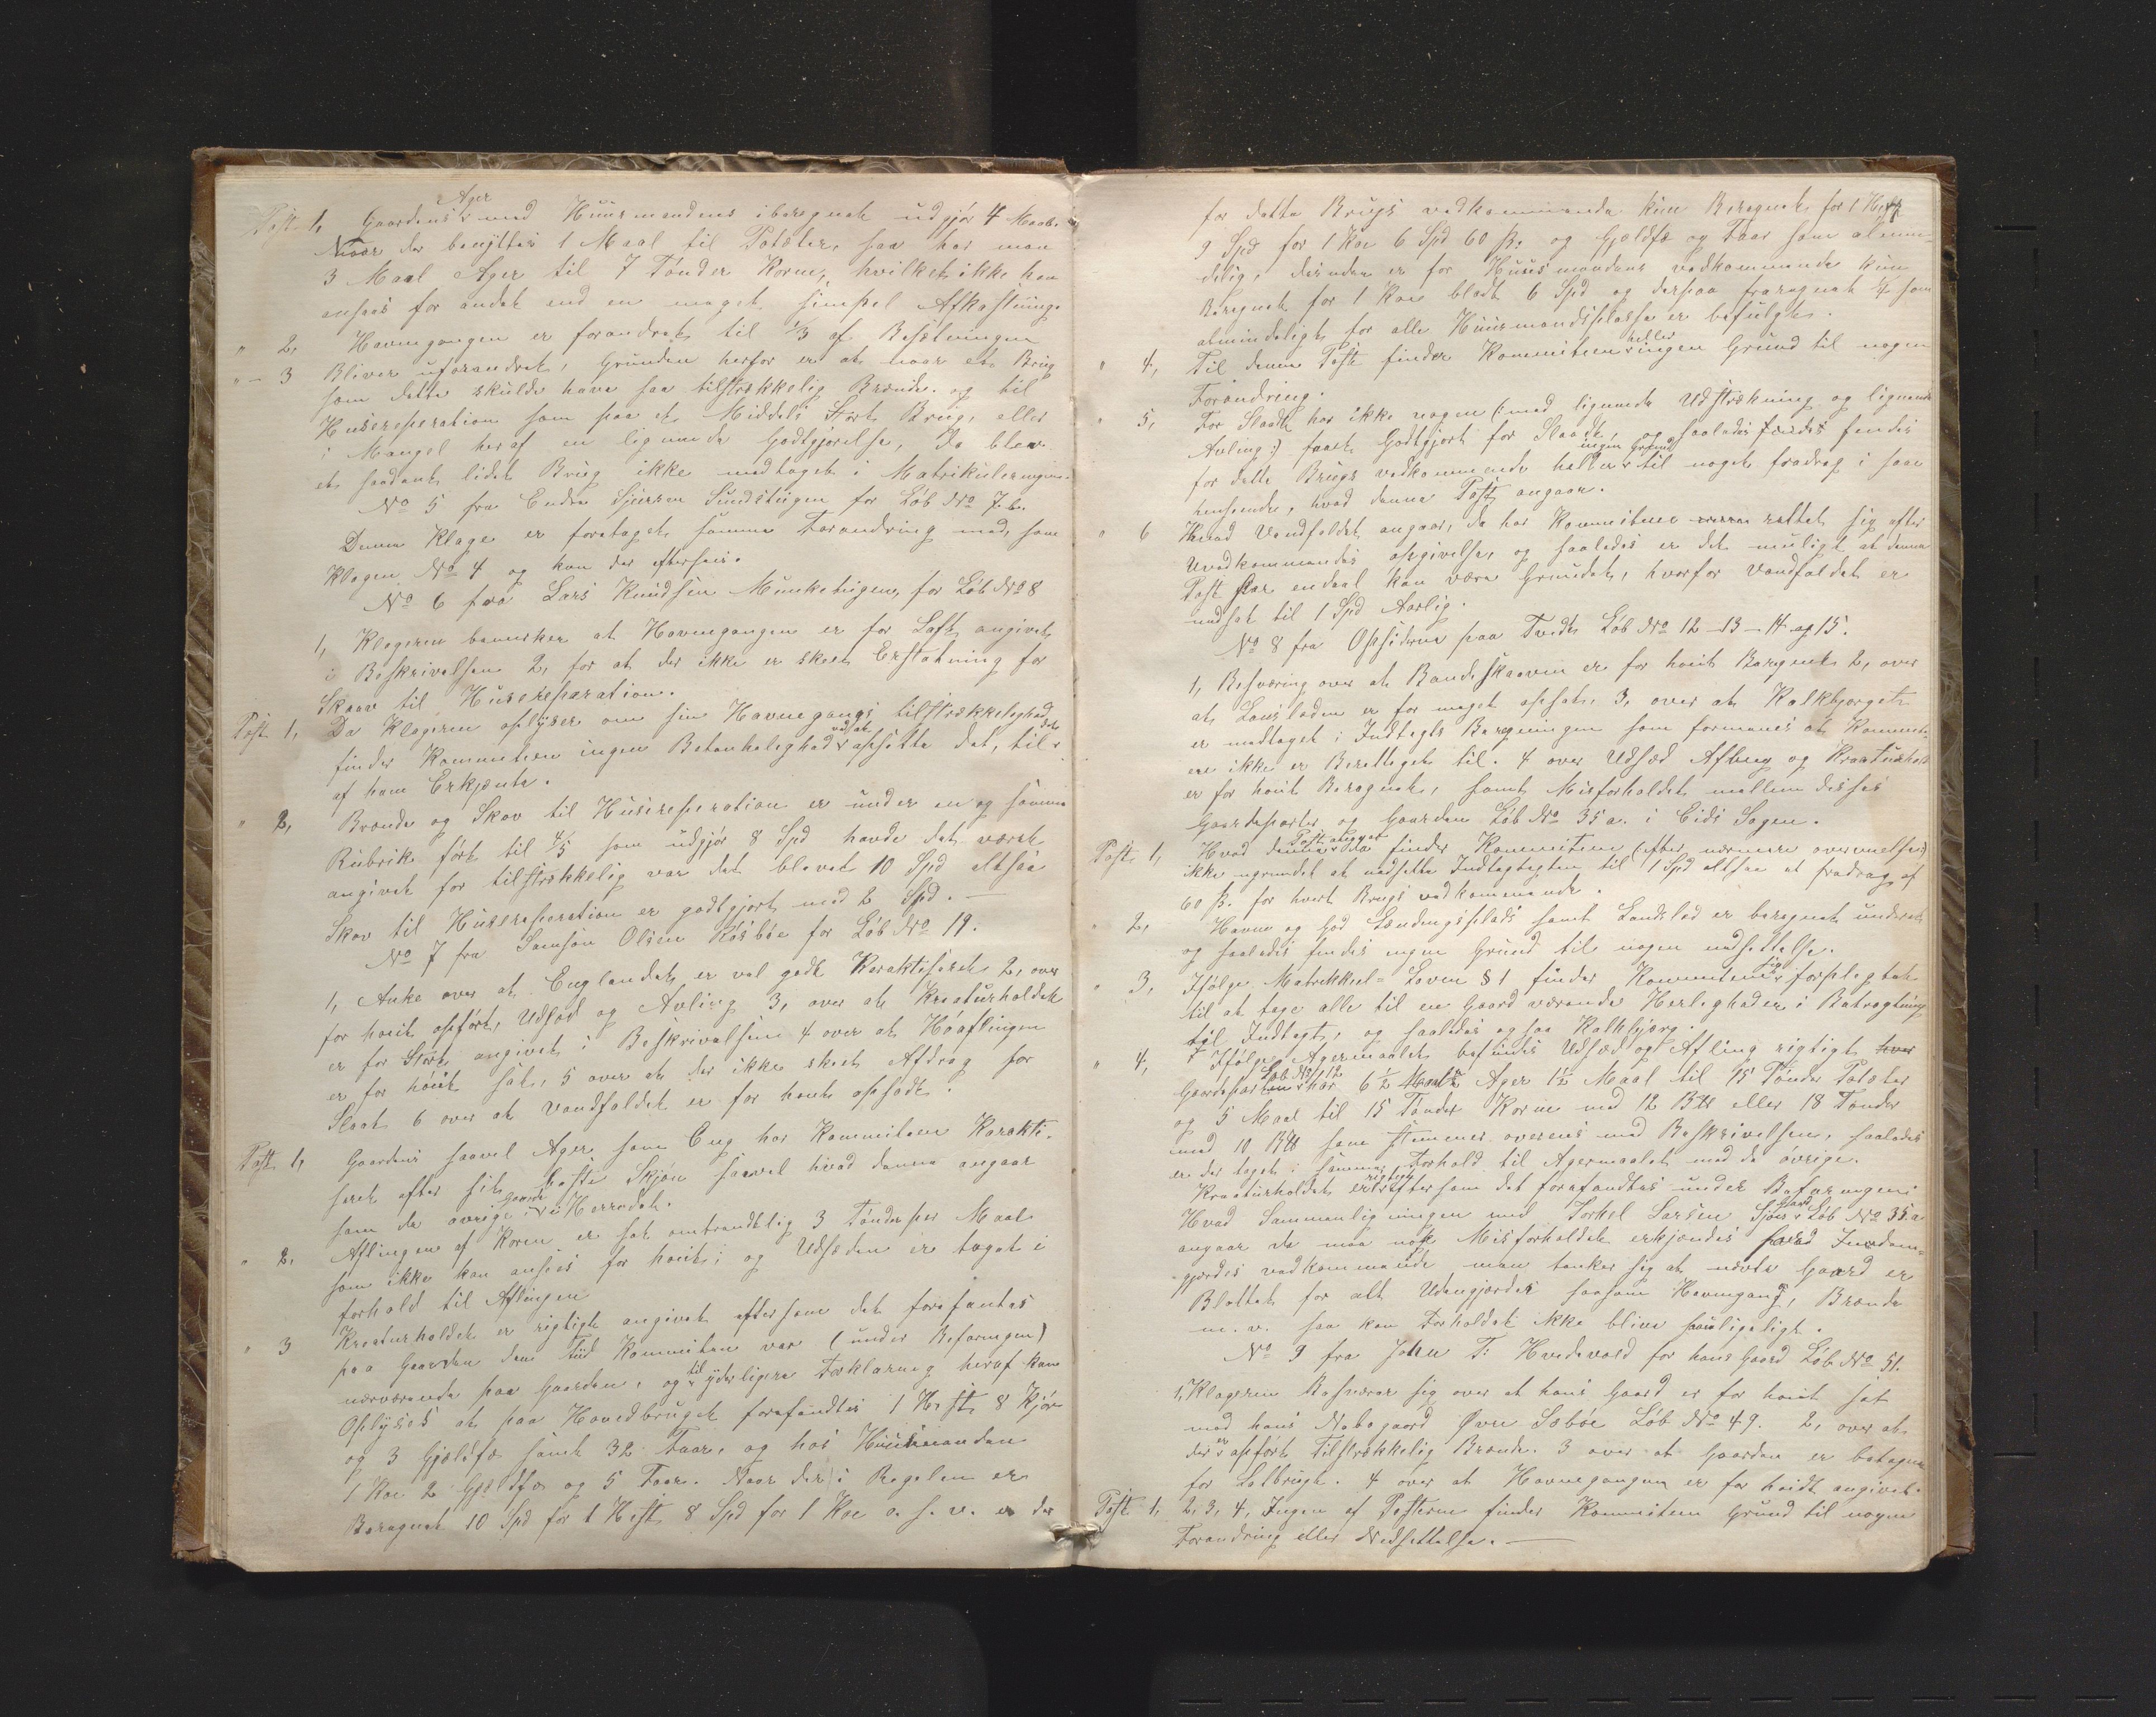 Ager
Post 1, Gaardens med Huusmandens iberegnet udgjör 4 Maal.
Naar der benyttes 1 Maal til Potæter, saa har man
3 Maal Ager til 7 Tönder Korn, hvilket ikke kan
ansees for andet end en meget simpel Afkastning.
" 2, Havnegangen er forandret til 1/3 af Besætningen
" - 3 Bliver uforandret, Grunden herfor er at naar et Brug
som dette skulde have saa tilstrækkelig Brænde og til
Husereperation som paa et Middels Stort Brug, eller
i Mangel heraf en lignende Godtgjörelse, da blev
et saadant lidet Brug ikke medtaget i Matrikuleringen.
No 5 fra Endre Sjursen Sundstigen for Löb No 7 b.
Denne Klage er foretaget samme Forandring med, som
Klagen No 4 og kan der eftersees.
No 6 fra Lars Knudsen Munketeigen, for Löb No 8
1, Klageren bemærker at Havnegangen er for Lavt angivet
i Beskrivelsen 2, for at der ikke er skeet Erstatning for
Skaav til Husereperation.
Post 1, Da Klageren oplyser om sin Havnegangs tilstrækkelighed
finder Kommiteen ingen Betænkelighed ved at opsætte det, til det
af ham Erkjente.
" 2, Brænde og Skov til Husereperation er under en og samme
Rubrik fört til 4/5 som udgjör 8 Spd havde det været
angivet for tilstrækkelig var det blevet 10 Spd altsaa
Skov til Husereperation er godtgjort med 2 Spd. —
No 7 fra Samson Olsen Rösböe for Löb No 19.
1, Anke over at Englandet er vel godt Karaktiseret 2, over
for höit opfört, Udsæd og Avling 3, over at Kreaturholdet
er for Stort angivet i Beskrivelsen 4 over at Höaflingen
er for höit sat, 5 over at der ikke skeet Afdrag for
Slaat 6 over at Vandfaldet er for höit opsadt.
Post 1, Gaardens saavel Ager som Eng har Kommiteen Karakti-
seret efter sit beste Skjön saavel hvad denne angaar
som de övrige Gaarde i Herredet.
" 2, Aflingen af Koren er sat omtrendtlig 3 Tönder per Maal
som ikke kan ansees for höit; og Udsæden er taget i
forhold til Aflingen
" 3 Kreaturholdet er rigtigt angivet eftersom det forefantes
paa Gaarden den tiid Kommiteen var (under Befaringen)
nærværende paa Gaarden, og til yderligere Forklaring heraf kan
Oplyses at paa Hovedbruget forefandtes 1 Hest 8 Kjör
og 3 Gjældfæ samt 32 Faar, og hos Huusmanden
1 Koe 2 Gjældfæ og 5 Faar. Naar der i Regelen er
Beregnet 10 Spd for 1 Hest 8 Spd for 1 Koe o. s. v. er der
for dette Brugs vedkommende kun Beregnet for 1 Hest
9 Spd for 1 Koe 6 Spd 60 ß. og Gjældfæ og Faar som almin-
delig, desuden er for Huusmandens vedkommende kun
Beregnet for 1 Koe blodt 6 Spd og derpaa fraregnet 1/4 som
almindeligt for alle Huusmandspladse er befulgt.
" 4, Til denne Post finder Kommiteen heller ingen Grund til nogen
Forandring.
" 5, For Slaadt har ikke nogen (: med lignende Udstrækning og lignende
Avling :) faaet Godtgjort for Slaadt, og saaledes findes
for dette Brugs vedkommende heller ingen Grund til noget fradrag i saa
henseende, hvad denne Post angaar.
" 6 Hvad Vandfaldet angaar, da har Kommiteen rettet sig efter
Uvedkommendes opgivelse, og saaledes er det muligt at denne
Post for endeel kan være Grundet, hvorfor Vandfaldet er
nedsat til 1 Spd Aarlig.
No 8 fra Opsidderne paa Tvedt Löb No 12 - 13 - 14 og 15.
1, Besværing over at Bandeskaven er for höit Beregnet 2, over
at Landsleden er for meget opsat, 3, over at Kalkbjerget
er medtaget i Indtægts Beregningen som formenes at Kommit-
een ikke er Berettiget til. 4 over Udsæd Afling og Kreaturhold
er for höit Beregnet, samt Misforholdet mellem disses
Gaardeparter og Gaarden Löb No 35 a. i Eids Sogen.
Post 1, Hvad denne Post angaar da finder Kommiteen (efter nærmere overveielse)
ikke ugrundet at nedsætte Indtægten til 1 Spd altsaa et fradrag af
60 ß. for hvert Brugs vedkommende.
" 2, Havn og God Landingsplads samt Landsled er beregnet underet
og saaledes findes ingen Grund til nogen nedsættelse.
" 3, Ifölge Matrikkul-Loven § 1 finder Kommiteen sig forpligtet
til at tage alle til en Gaard værende Herligheder i Betragtning
til Indtægt, og saaledes ogsaa Kalkbjerg.
" 4, Ifölge Agermaalet befindes Udsæd og Afling rigtigt
Gaardeparten Löb No 12 har 6 1/2 Maal Ager 1 1/2 Maal til 15 Tönder Potæter
og 5 Maal til 15 Tönder Korn med 12 B℔ eller 18 Tönder
med 10 B℔ som stemmer overens med Beskrivelsen, saaledes
er der taget i samme Forhold til Agermaalet med de övrige.
Kreaturholdet er rigtigt eftersom det forefandtes under Befaringen
Hvad Sammenligningen med Torkel Larsen Sjöes Gaard Löb No 35 a
angaar da maa nok Misforholdet erkjendes hvad Indom-
gjærdes vedkommende man tænker sig at nævte Gaard er
Blottet for alt Udengjærdes saasom Havnegang, Brænde
m. v. saa kan Forholdet ikke blive saa uligeligt.
No 9 fra John T: Hvedevold for hans Gaard Löb No 51.
1, Klageren Besværer sig over at hans Gaard er for höit sat
mod hans Nabogaard Övre Sæböe Löb No 49. 2, over at
der er opfört tilstrækkelig Brænde. 3 over at Gaarden er betegnet
for Letbrugt. 4 over at Havnegangen er for höidt angivet.
Post 1, 2, 3, 4, Ingen af Posterne finder Kommiteen Grund til nogen
Forandring eller Nedsættelse. —